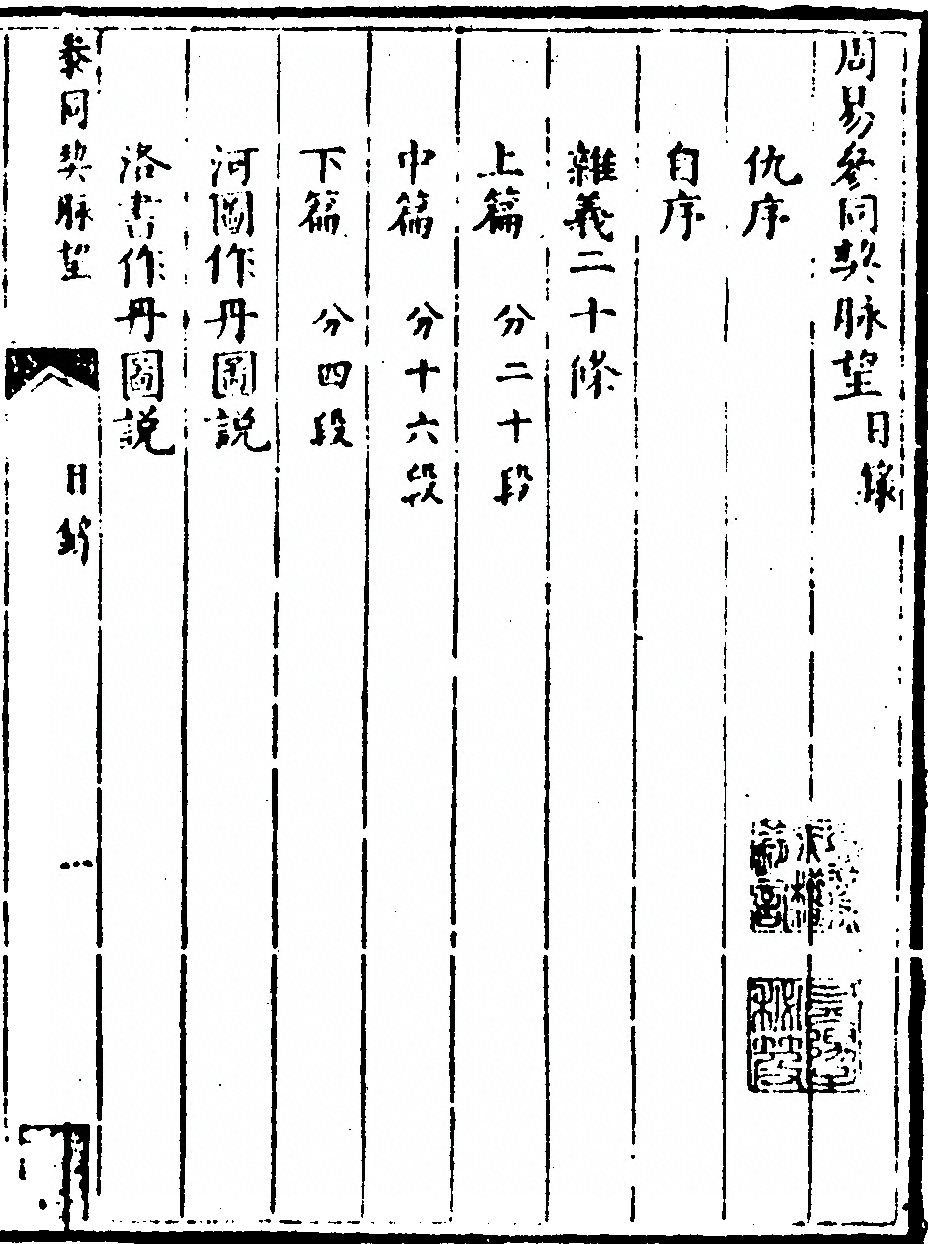 周易參同契脉望目錄
仇序
自序
雜義二十條
上篇 分二十段
中篇 分十六段
下篇 分四段
河圖作丹圖説
洛書作丹圖説
參同契脉望 目錄 一